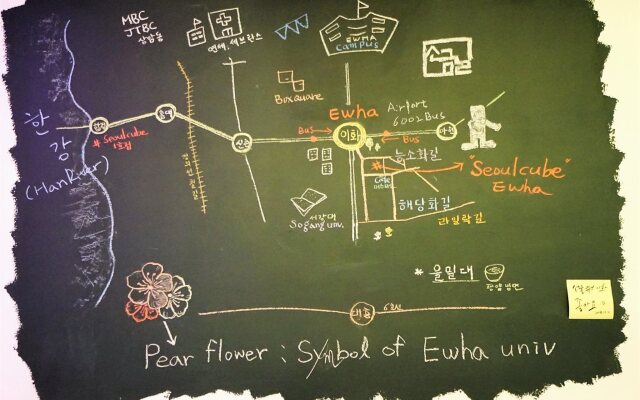 MBC
JTBC
상암동
연세.세브란스
EWHA
Campus
Boxquare
Ewha
Airport
6002 Bus
한
강
(Han River)
합정
홍대
신촌
Bus
이화
Bus
아현
# Seoulcube
1호점
능소화길
"Seoulcube"
Ewha
해당화길
라일락길
서강대
Sogang univ.
* 을밀대
평양냉면
대흥
6호선
Pear flower : Symbol of Ewha univ